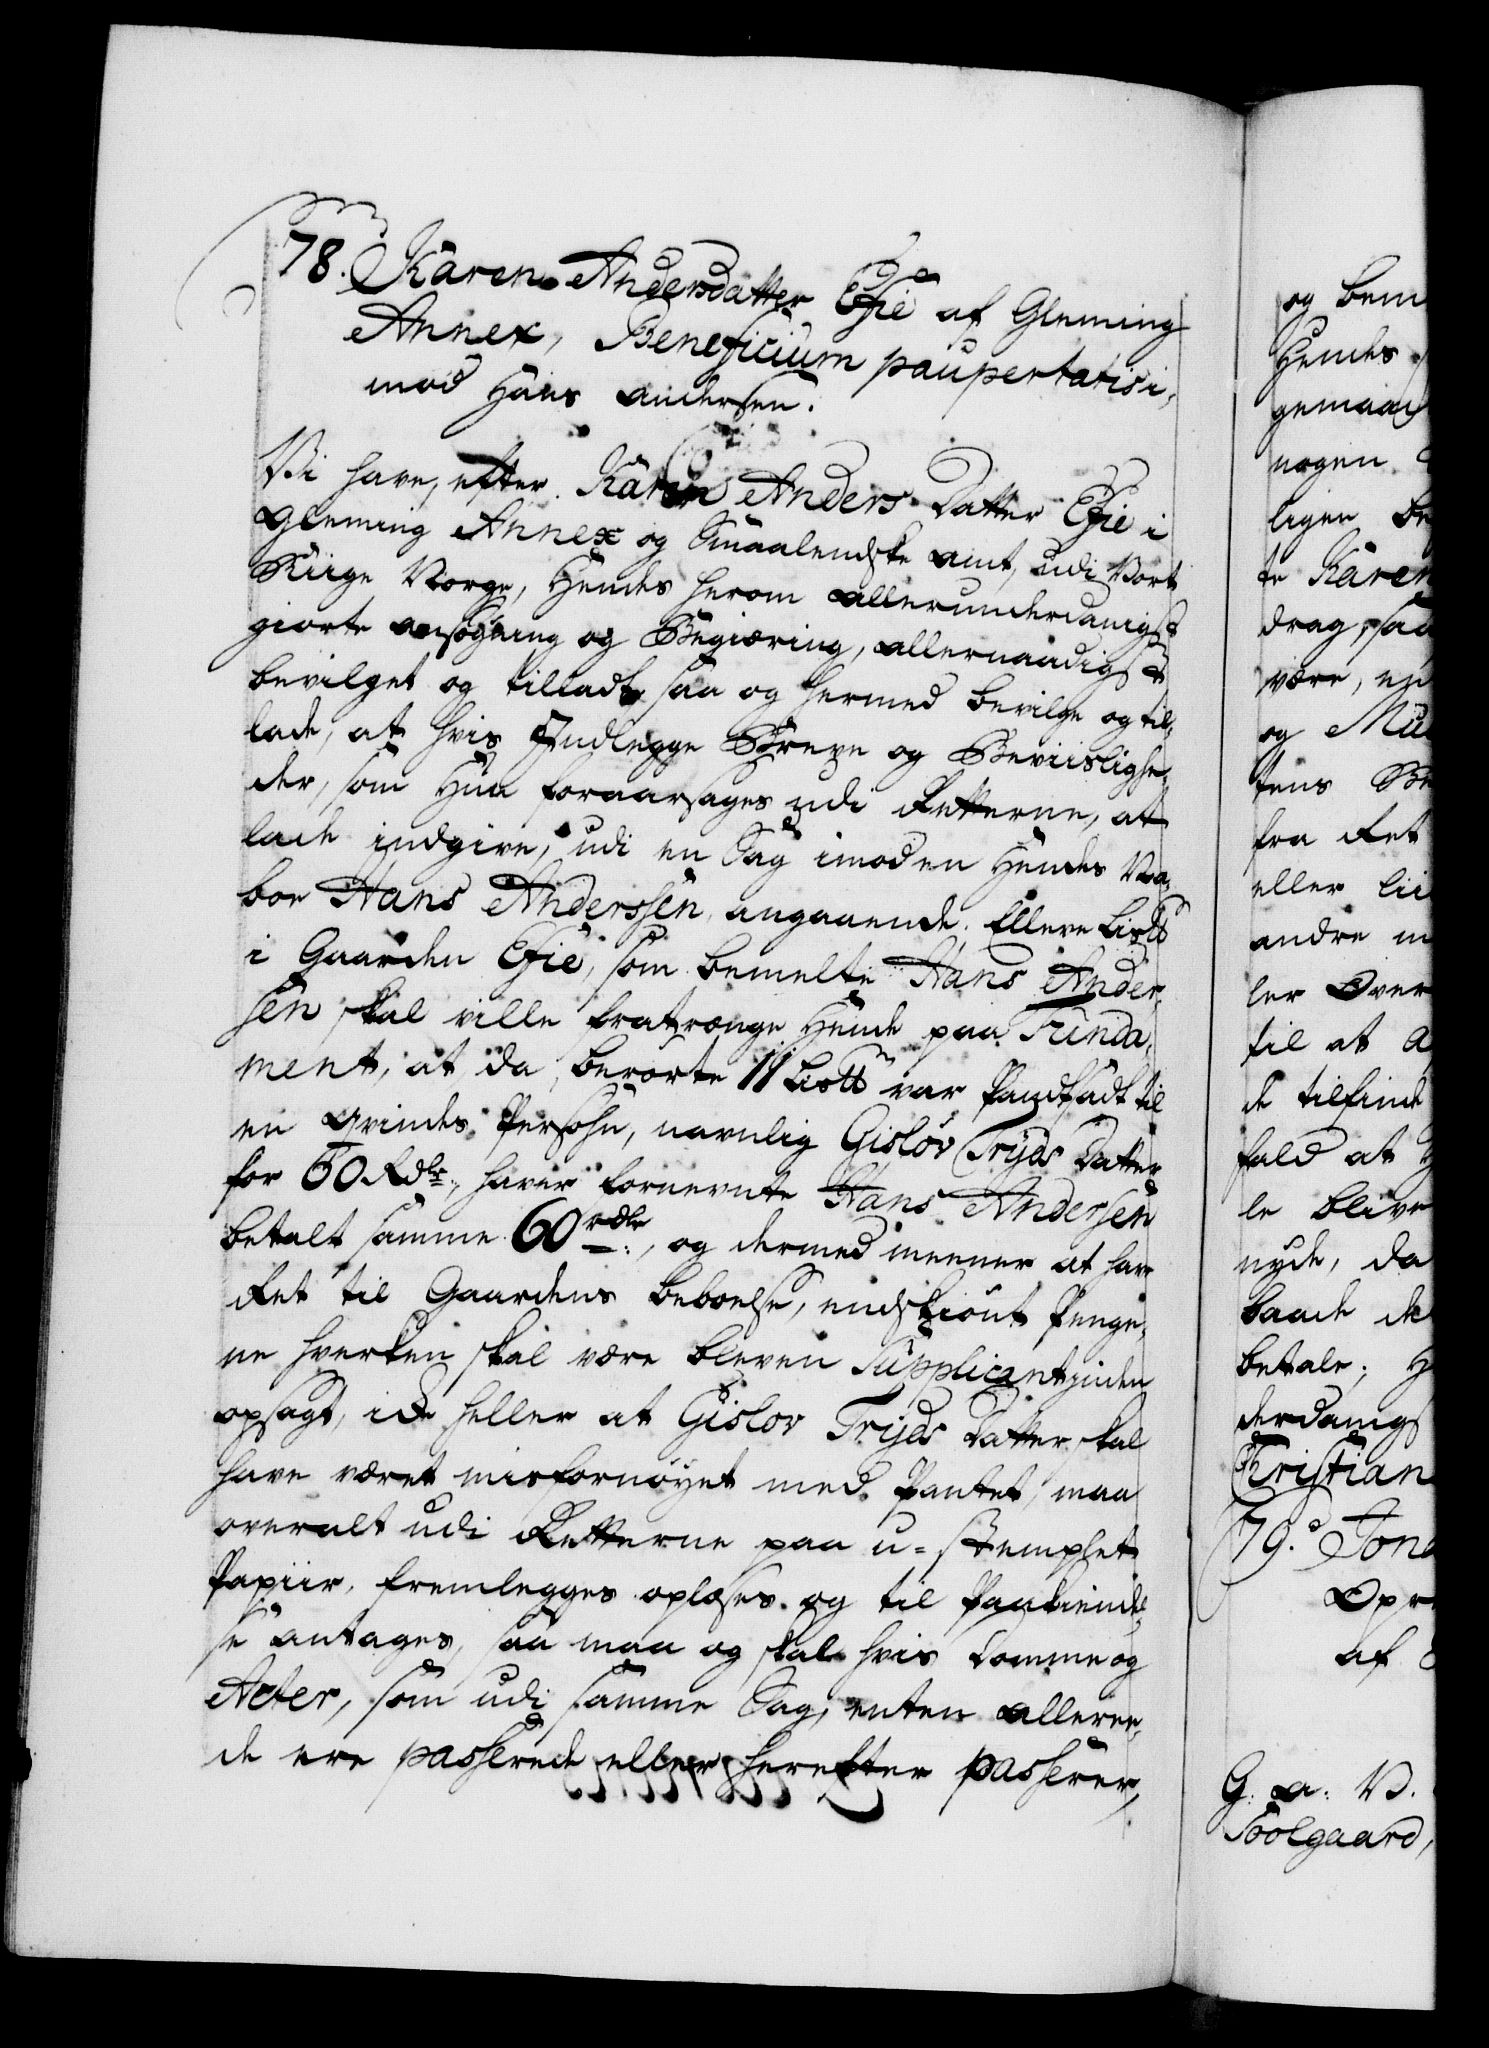 78. Karen Andersdatter Efie af Gleming
Annex, Beneficium paupertatis i,
mod Hans Andersen.
Vi have, efter Karen Anders Datter Efie i
Gleming Annex og Smaalendske Amt, udi Vort
Riige Norge, Hendes herom allerunderdanigst
giorte Ansøgning og Begiæring, allernaadigst
bevilget og tilladt, saa og hermed bevilge og til-
lade, at hvis Indlegge Breve og Beviislighe-
der, som Hun foraarsages udi Retterne, at
lade indgive, udi en Sag imod en Hendes Na-
boe Hans Anderssen, angaaende Elleve Lispd
i Gaarden Efie, som bemelte Hans Ander-
sen skal ville fratrænge Hende paa Funda-
ment, at da berørte 11 Lispd var Pandtsadt til
en Qvindes Persohn, navnlig Gisløv Tryds Datter
for 60 Rdlr., haver fornevnte Hans Andersen
betalt samme 60 rdlr., og dermed meener at have
Ret til Gaardens beboelse, endskiønt Penge-
ne hverken skal være bleven Supplicantinden
opsagt, icke heller at Gislov Tryds Datter skal
have været misfornøyet med Pantet, maa
overalt udi Retterne paa u-stemplet
Papiir, fremlegges oplæses og til Paakiendel-
se antages, saa maa og skal hvis Domme og
Acter, som udi samme Sag, enten alleree-
de ere passerede eller herefter passerer,
og bem
Hendes
gemaa
nogen
ligen be
te Karen
drag, saa
være, en
og Mu
tens Be
fra Ret
eller lii
andre m
ler Over
til at a
de tilfinde
fald at
le blive
nyde, da
baade de
betale; H
derdanigs
Christian
79. Jon
Opr
af
G: A: V.
Toolgaard,